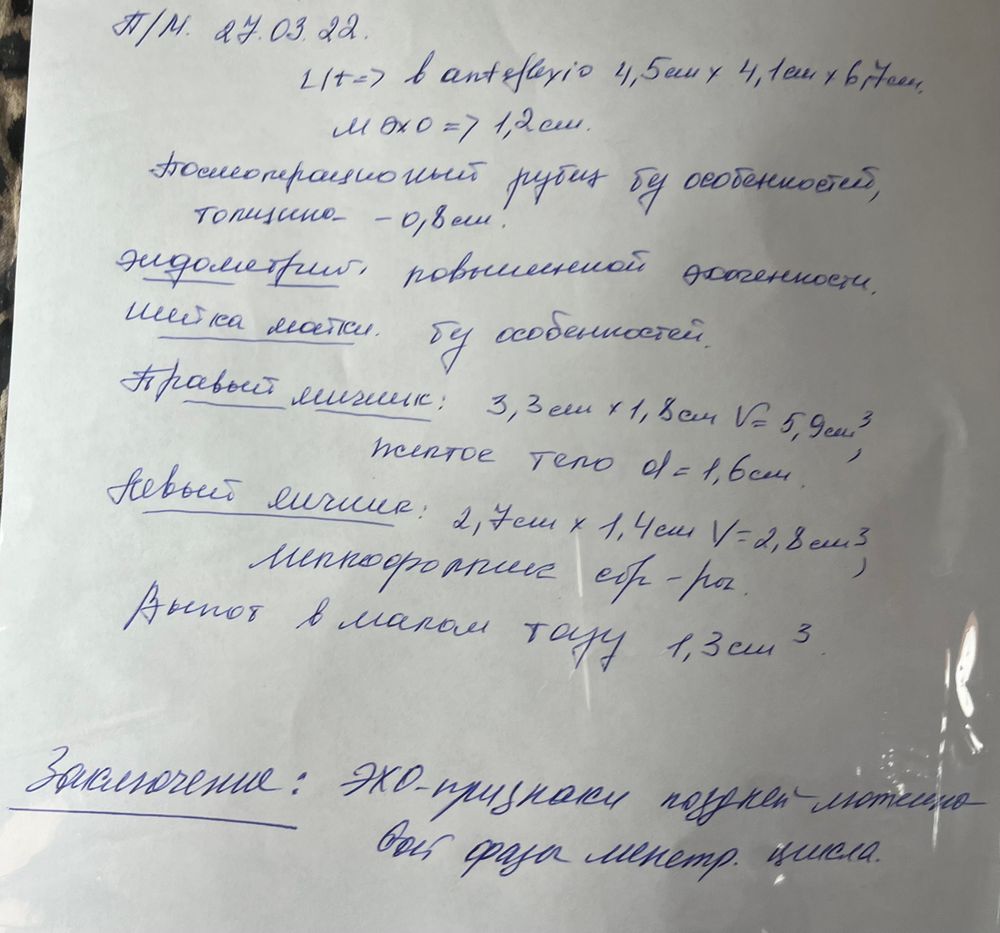 П/М. 27.03.22.
Ut => в anteflexio 4,5см x 4,1см x 6,7см.
М эхо => 1,2см.
Послеоперационый рубец б/у особенностей,
толщина - 0,8см.
Эндометрий. повышенной эхогенности.
Шейка матки. б/у особенностей.
Правый яичник: 3,3см x 1,8см V= 5,9см³,
желтое тело d = 1,6см.
Левый яичник: 2,7см x 1,4см V= 2,8см³,
мелкофоллик стр-ры.
Выпот в малом тазу 1,3см³.
Заключение: ЭХО-признаки поздней лютеино
вой фазы менстр. цикла.